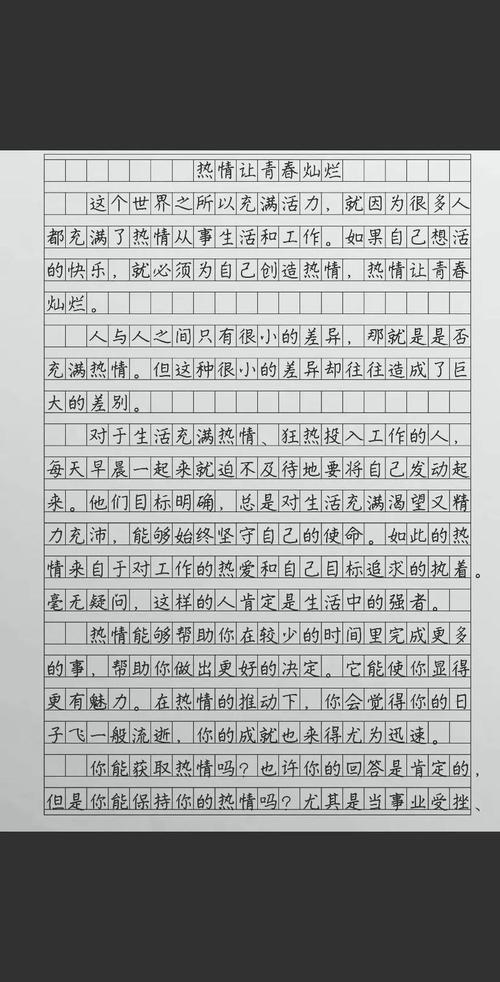 热情让青春灿烂
这个世界之所以充满活力，就因为很多人
都充满了热情从事生活和工作。如果自己想活
的快乐，就必须为自己创造热情，热情让青春
灿烂。
人与人之间只有很小的差异，那就是是否
充满热情。但这种很小的差异却往往造成了巨
大的差别。
对于生活充满热情、狂热投入工作的人，
每天早晨一起来就迫不及待地要将自己发动起
来。他们目标明确，总是对生活充满渴望又精
力充沛，能够始终坚守自己的使命。如此的热
情来自于对工作的热爱和自己目标追求的执着。
毫无疑问，这样的人肯定是生活中的强者。
热情能够帮助你在较少的时间里完成更多
的事，帮助你做出更好的决定。它能使你显得
更有魅力。在热情的推动下，你会觉得你的日
子飞一般流逝，你的成就也来得尤为迅速。
你能获取热情吗？也许你的回答是肯定的，
但是你能保持你的热情吗？尤其是当事业受挫、